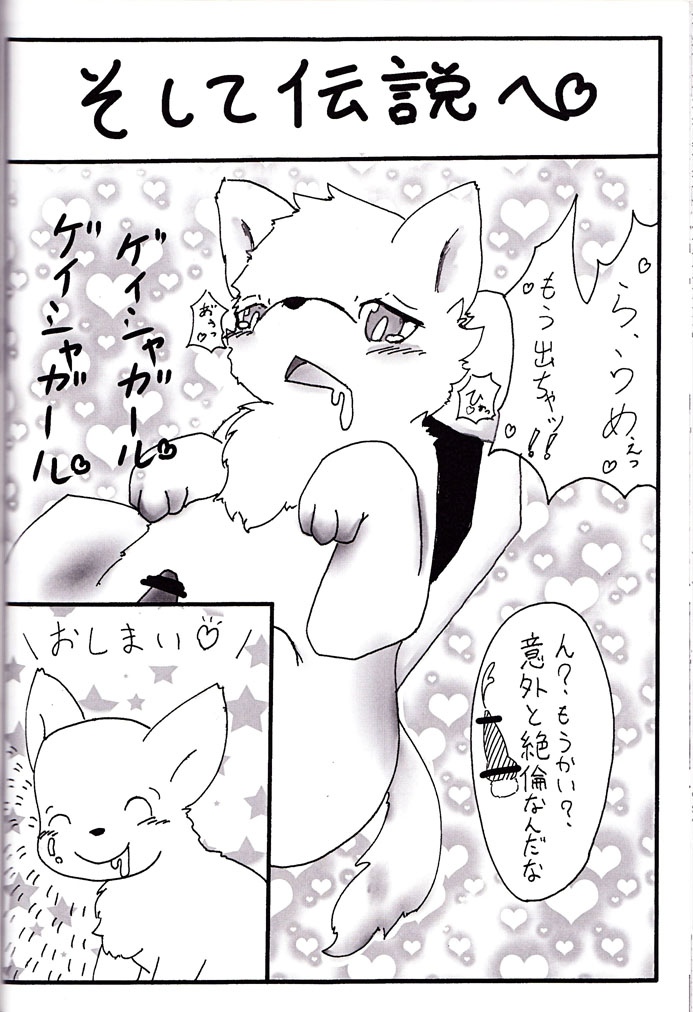 そして伝説へ♡
ら、らめぇっ♡
もう出ちゃッ!!
ひゃっ♡
おぅっ♡
ゲイシャガール♡
ゲイシャガール♡
ん?もうかい?
意外と絶倫なんだな
おしまい♡